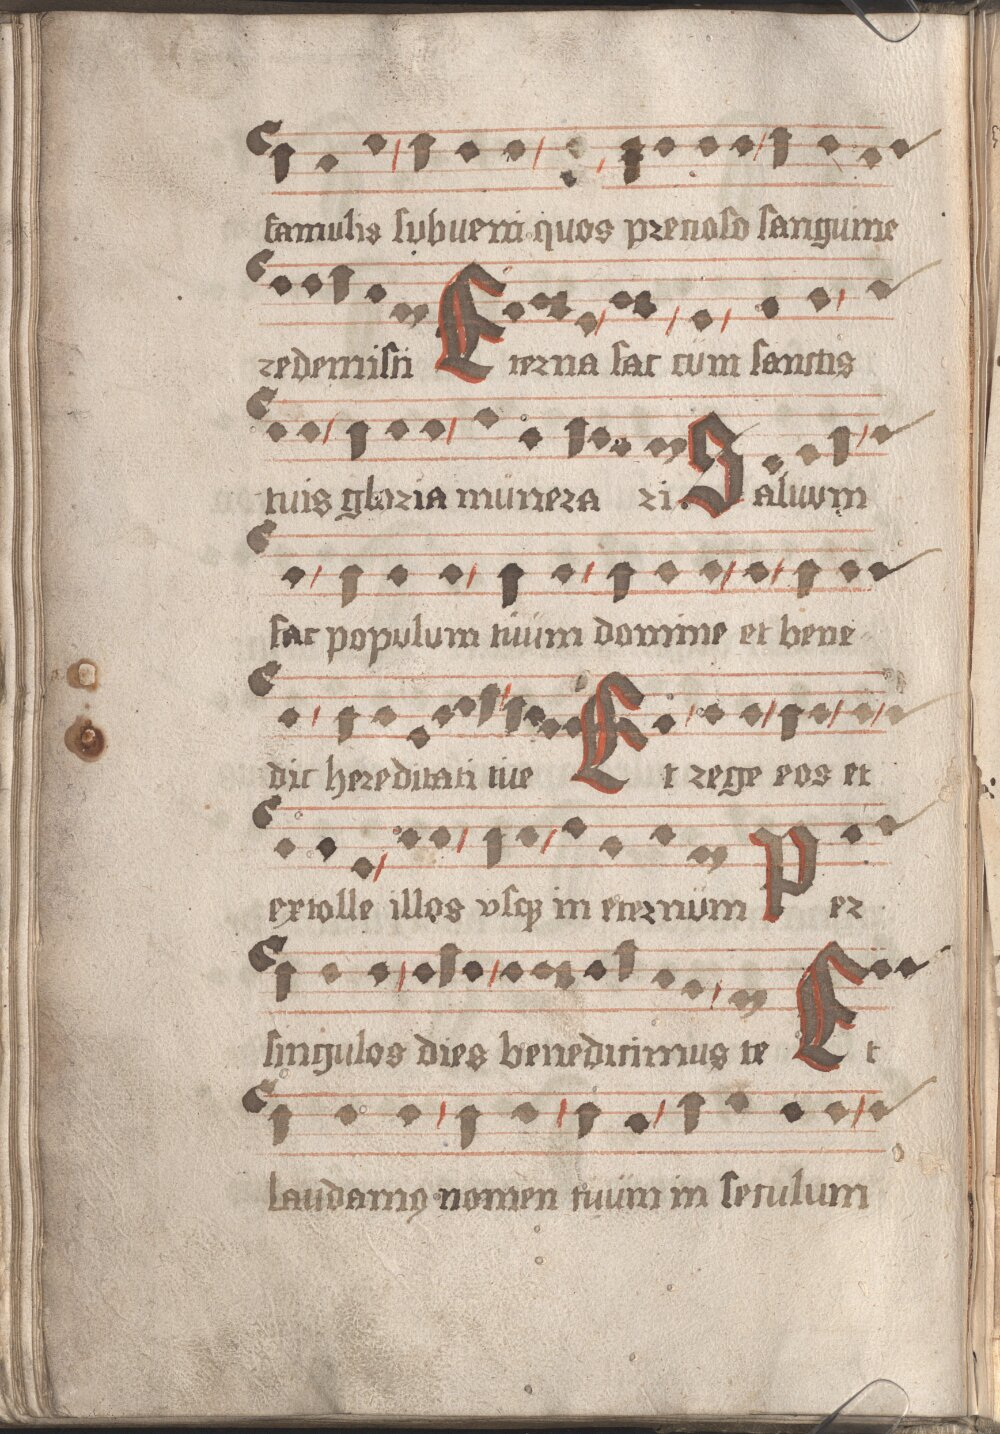 famulis subueni quos precioso sanguine
redemisti Eterna fac cum sanctis
tuis gloria munera ri. Saluum
fac populum tuum domine et bene
dic hereditati tue Et rege eos et
extolle illos vsqꝫ in eternum Per
singulos dies benedicimus te Et
laudamꝰ nomen tuum in seculum